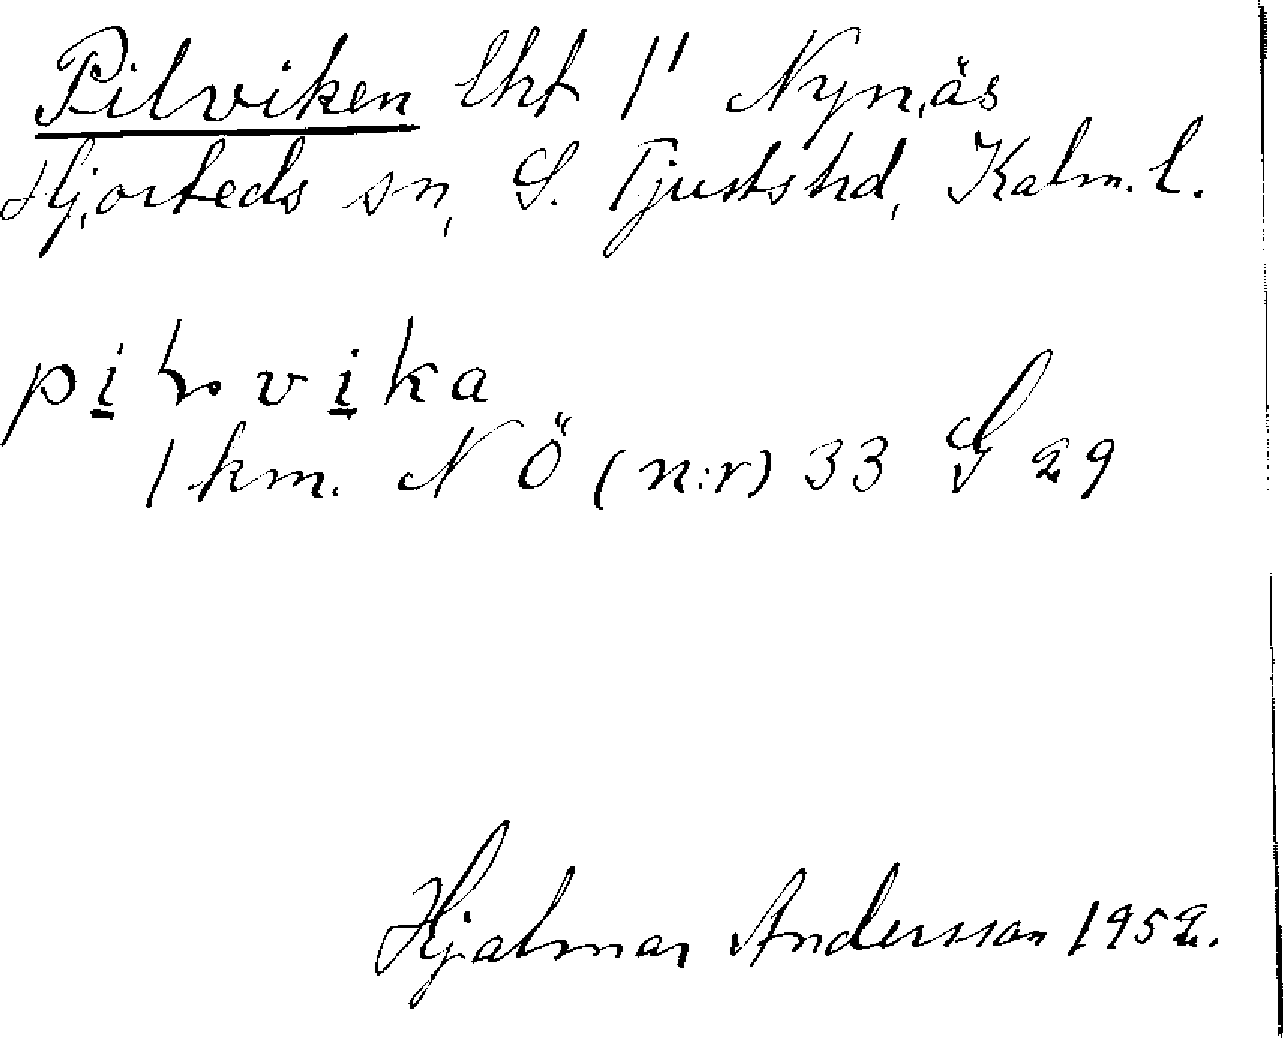 Pilviken lht 1' Nynäs
Hjorteds sn, S. Tjustshd, Kalm. l.
vika
1 km. N Ö (n:r) 33 S 29
Hjalmar Andersson 1952.